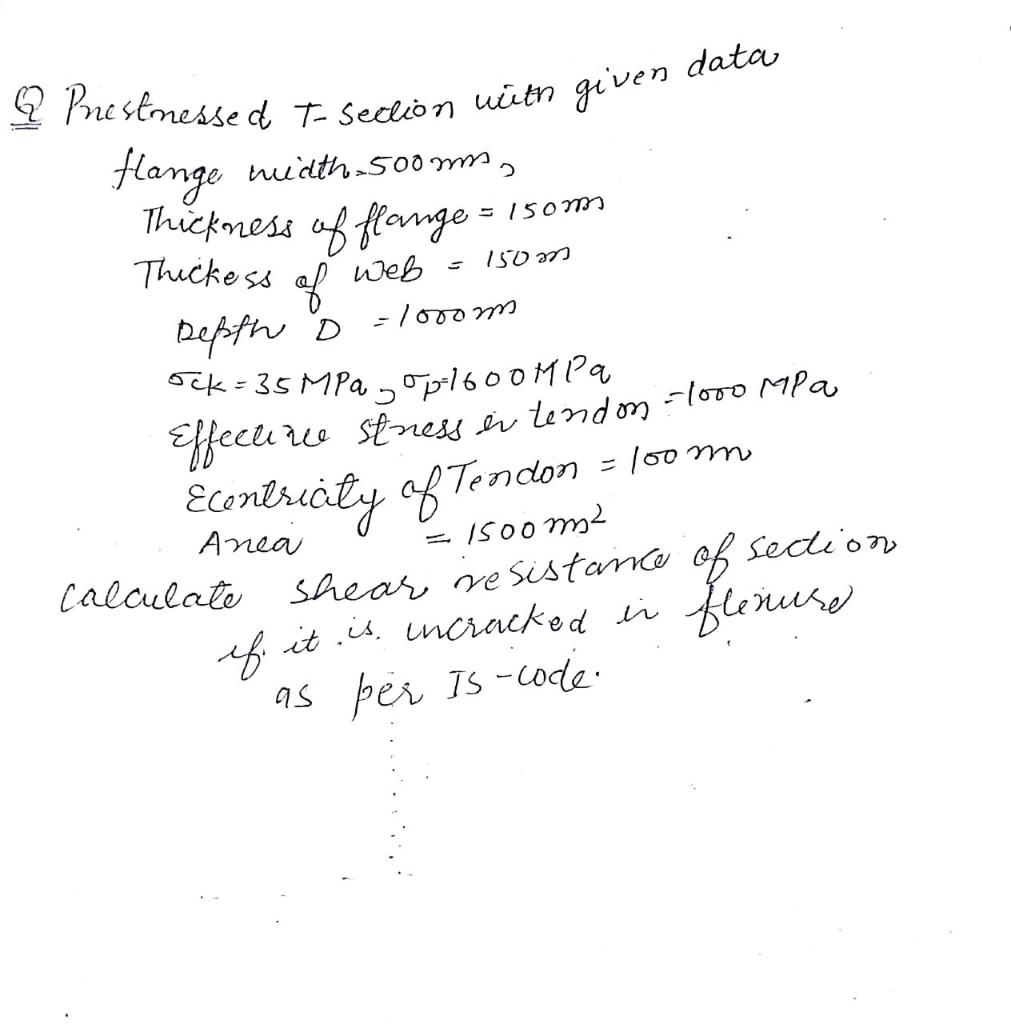 Q Prestressed T-Section with given data
flange width = 500 mm,
Thickness of flange = 150 mm
Thickess of web = 150 mm
Depth D = 1000 mm
σck = 35 MPa, σp = 1600 MPa
Effective stress in tendon = 1000 MPa
Ecentricity of Tendon = 100 mm
Area = 1500 mm²
Calculate shear resistance of section
if it is uncracked in flexure
as per IS-code.